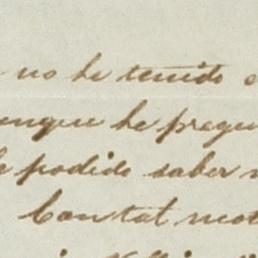 no he tenido
aunque he pregu
podido saber
Con tal mot